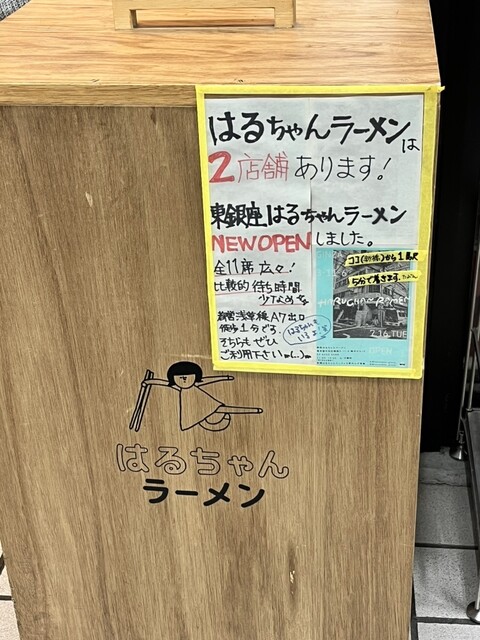 はるちゃんラーメンは
2店舗あります!
東銀座はるちゃんラーメン
NEW OPENしました。
全11席 広々!
比較的待ち時間
少なめです
都営浅草線A7出口
徒歩1分です。
そちらも ぜひ
ご利用下さいm(..)m
ココ(新橋)から1駅
5分で着きます。
HARUCHAN RAMEN
2.16 TUE
OPEN
はるちゃん
ラーメン